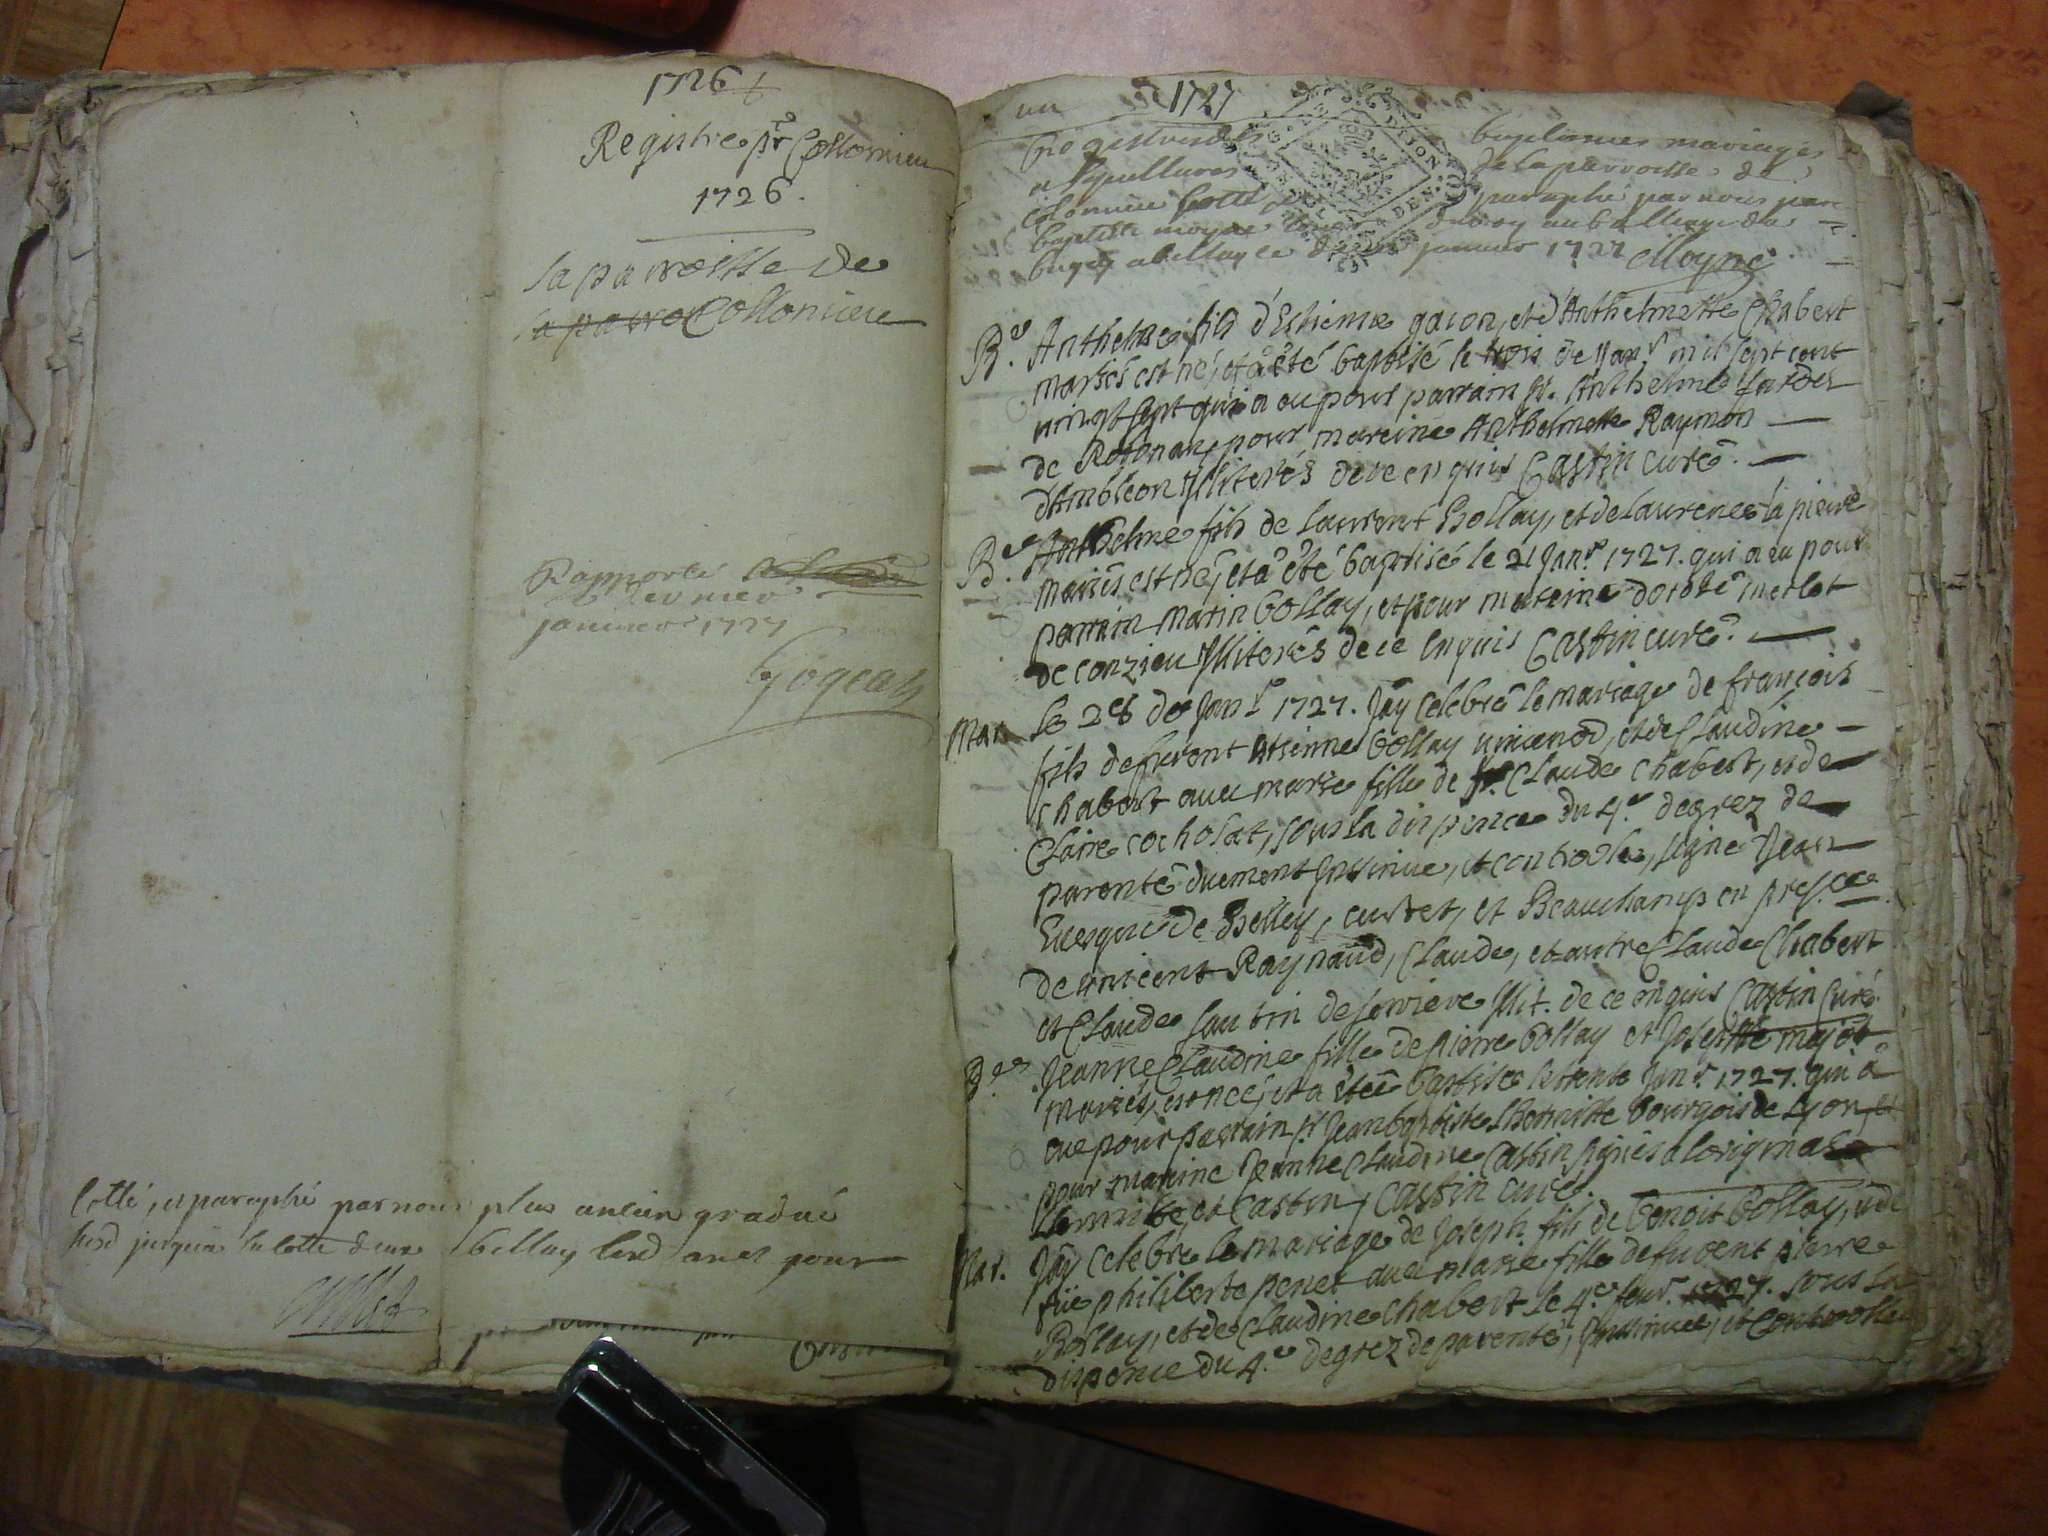 1726
Registre pr Collomieu
1726.
la parroisse de
la parro Collomieu
Rapporté
dernier
janvier 1727
Gogean
Cotté, et paraphé par nous plus ancien gradué
jusqua la cotte deux Bellay les an et jour
1727
un
Registre des baptesmes mariages
et sepultures de la parroisse de
Colomieu cotté et paraphé par nous jean
baptiste moyne du roy au balliage du
bugey a bellay le janvier 1727 Moyne
B.e Anthelme fils d'Estienne gacon, et d'Anthelmette Chabert
mariés est né, et a été baptisé le trois de Janr mil sept cent
vingt sept qui a eu pour parrain Sr. Anthelme
de Rossonas, pour mareine Anthelmette Raymon
d'Ambleon Illiterés de ce enquis Castin curé.
B.e Anthelme fils de Laurent Bollay, et de Laurence la pierre
mariés est né, et a été baptisé le 21 Janr. 1727. qui a eu pour
parrain Matin Bollay, et pour mareine dorothé merlot
de conzieu Illiterés de ce enquis Castin curé.
Mar. Le 28 de Janr 1727. J'ay celebré le mariage de françois
fils de fuvent Etienne Bollay vincend, et de Claudine
chabert avec marie fille de Sr. Claude chabert, et de
Claire cochosat, sous la dispence du 4.e degrez de
parenté duement Insinué, et controolé, signé Jean
Evesque de Belley, curtet, et Beauchamp en presce
de vincent Raynaud, Claude, et autre Claude Chabert
et Claude de Illit. de ce enquis Castin Curé.
B.e Jeanne Claudine fille de pierre Bollay et Josephte majot
mariés, est née, et a étée baptisée le trente Janr. 1727. qui a
eue pour parrain Sr Jean baptiste bourgois de Lyon, et
pour marine Jeanne Claudine Castin signés a loriginal
et Castin, Castin curé.
Mar. J'ay celebré le mariage de Joseph fils de benoit Bollay, et de
füe philiberte penet avec marie fille de fuvent pierre
Bollay, et de Claudine chabert le 4.e fevr. 1727. sous la
dispence du 4.e degrez de parenté, Insinuée, et controollé